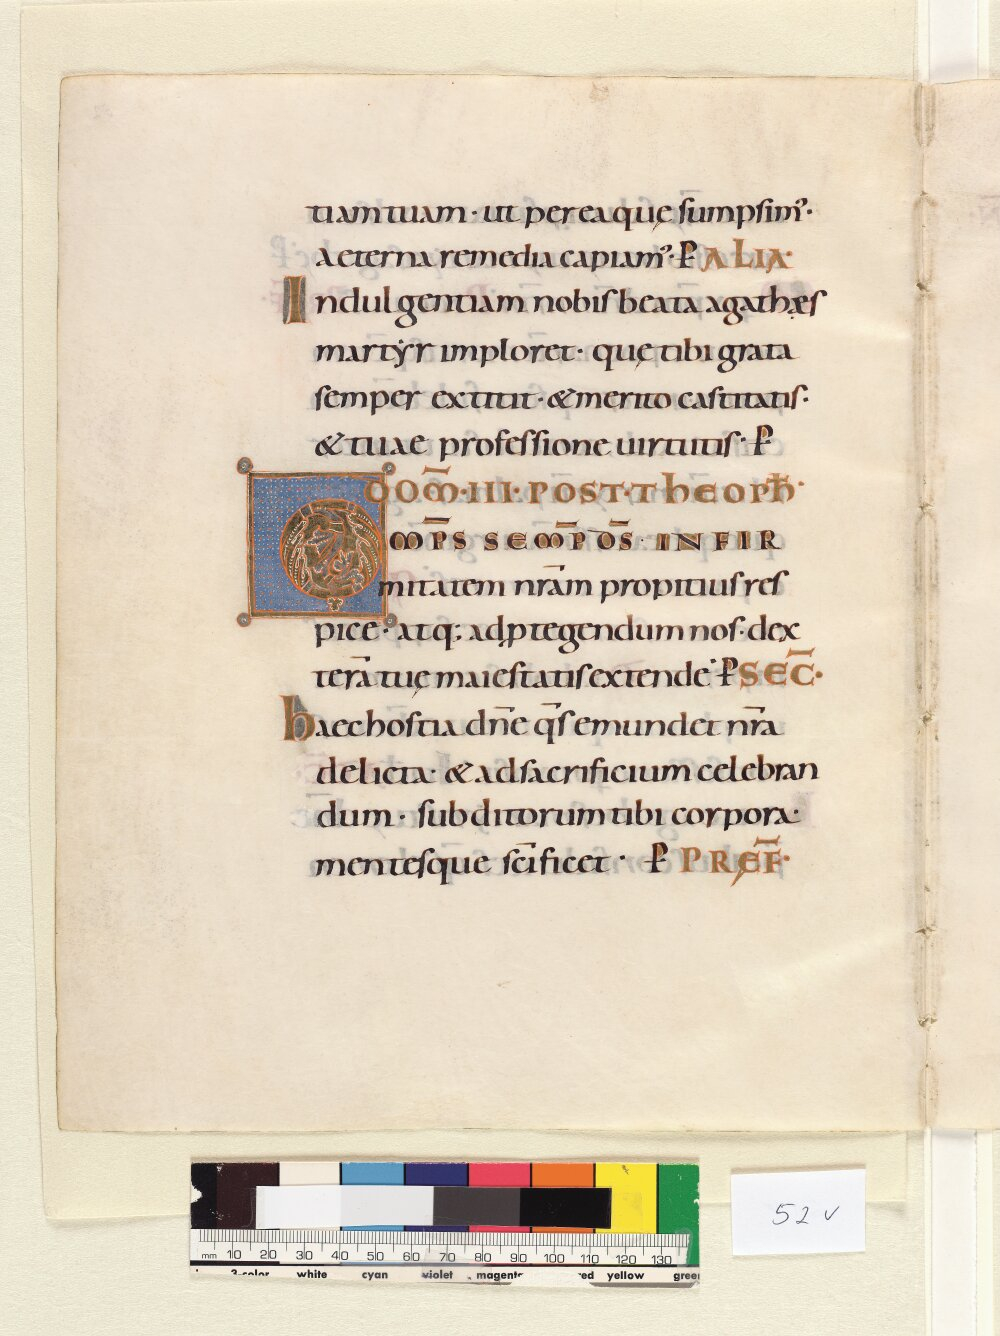 tiam tuam · ut per ea quę sumpsim᾽·
aeterna remedia capiam᾽· P ALIA·
Indulgentiam nobis beata agathæs
martẏr imploret · quę tibi grata
semper extitit · & merito castitatis·
& tuae professione uirtutis· P
DOM̅·III·POST·THEOPH̅·
OMP̅S SEMP̅ DS̅ · INFIR
mitatem nr̅am propitius res
pice · atq; ad ꝓtegendum nos · dex
terā tuę maiestatis extende · P SEC̅·
haec hostia dn̅e qs̅ emundet nr̅a
delicta · & ad sacrificium celebran
dum · subditorum tibi corpora·
mentesque sc̅ificet · P PREF̅·
52 v
mm 10 20 30 40 50 60 70 80 90 100 110 120 130
3-color white cyan violet magenta red yellow green